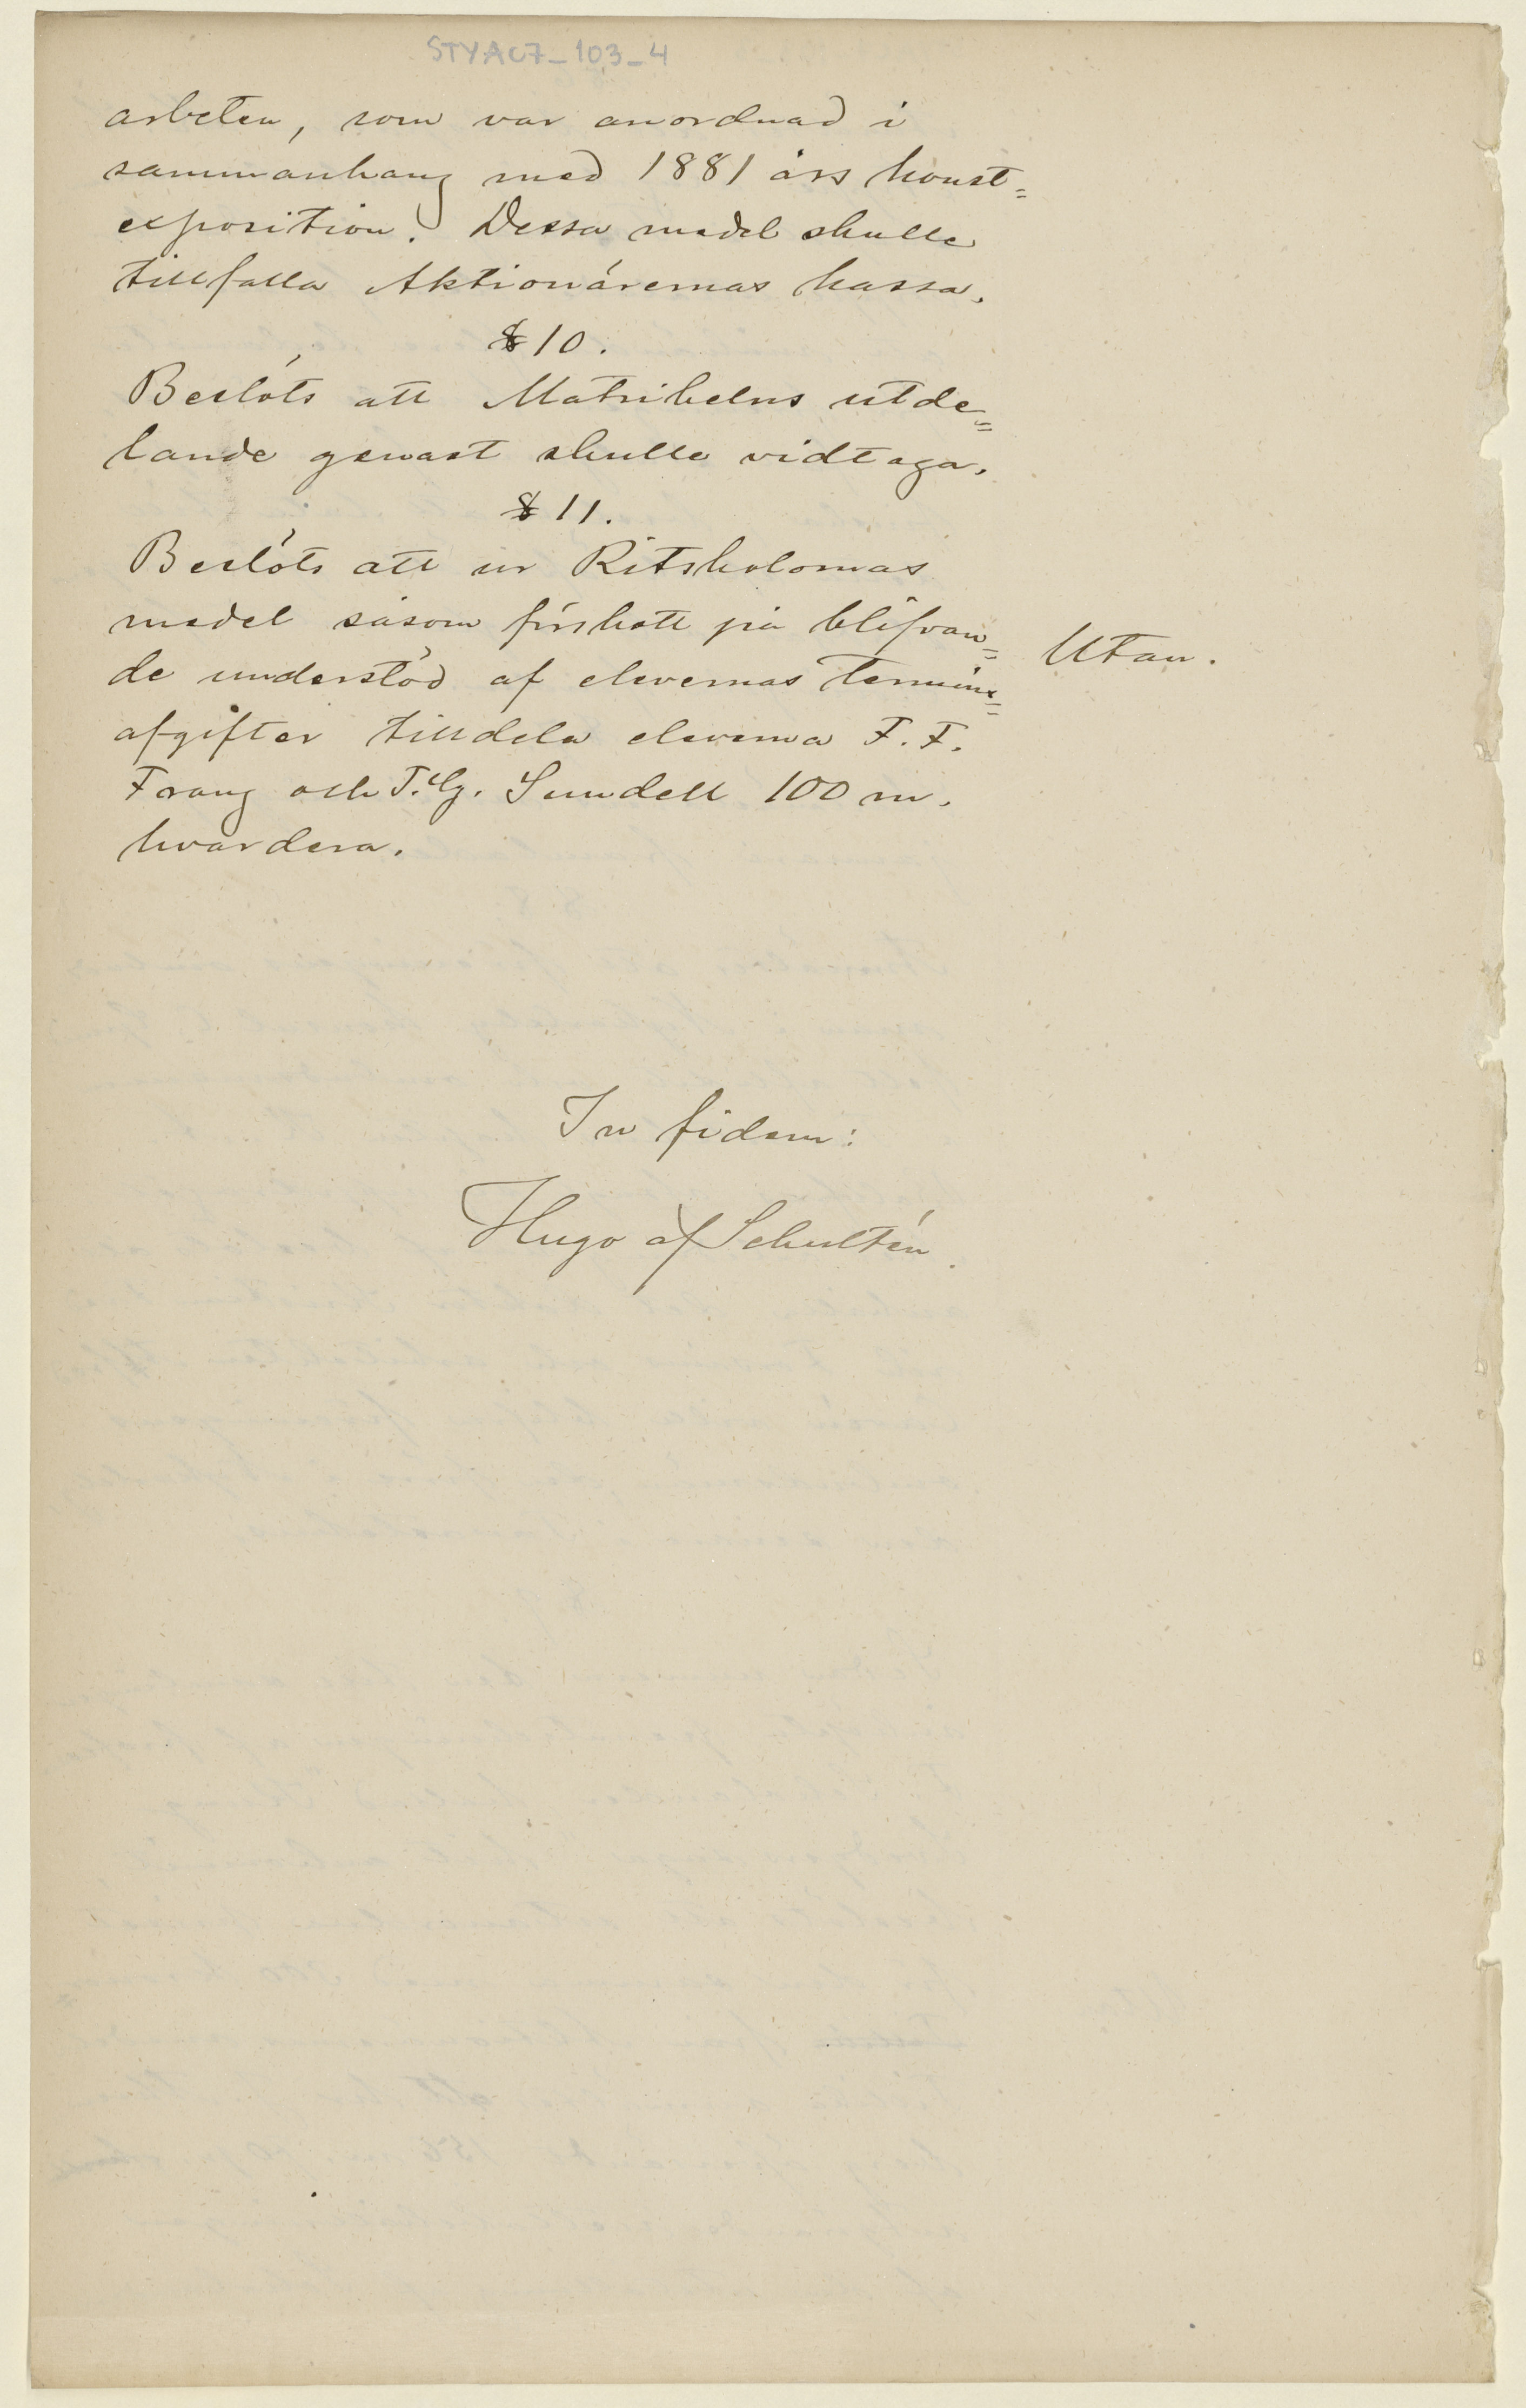 STYAC7_103_4
arbeten, som var anordnad i
sammanhang med 1881 års konst=
exposition. Dessa medel skulle
tillfalla Aktionärernas kassa.
§ 10.
Beslöts att Matrikelns utde=
lande genast skulle vidtaga.
§ 11.
Beslöts att ur Ritskolornas
medel såsom förskott på blifvan=
Utan.
de understöd af elevernas Termins=
afgifter tilldela eleverna F. F.
Frang och T. G. Sundell 100 m.
hvardera.
In fidem:
Hugo af Schultén.